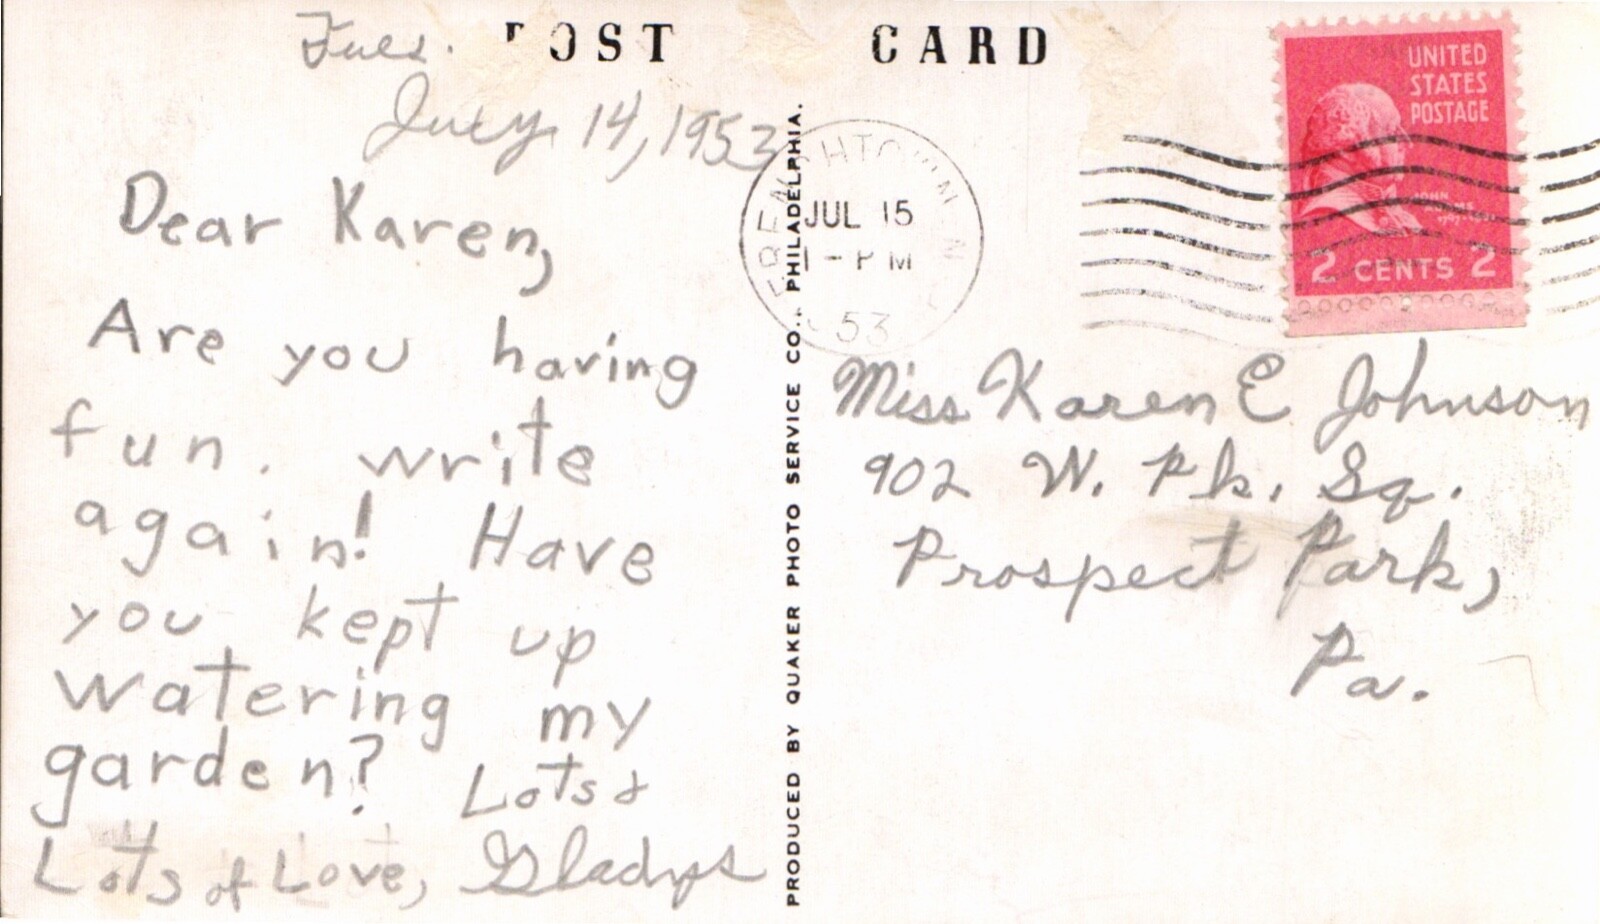 POST CARD
Tues.
July 14, 1953
Dear Karen,
Are you having
fun. write
again! Have
you kept up
watering my
garden? Lots &
Lots of Love, Gladys
PRODUCED BY QUAKER PHOTO SERVICE CO., PHILADELPHIA.
JUL 15
1 - PM
53
UNITED
STATES
POSTAGE
JOHN
ADAMS
2 CENTS 2
Miss Karen E Johnson
902 W. Pk. Sq.
Prospect Park,
Pa.